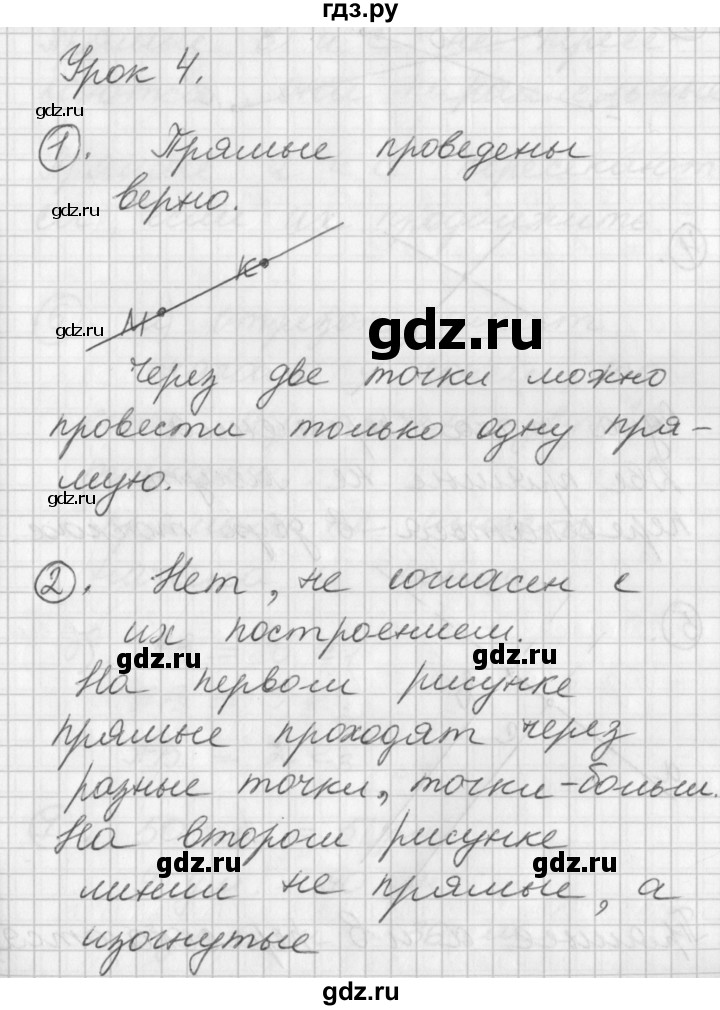 гдз.ру
Урок 4.
gdz.ru
1. Прямые проведены
gdz.ru
верно.
К
М
gdz.ru
gdz.ru
Через две точки можно
провести только одну пря-
мую.
gdz.ru
2. Нет, не согласен с
их построением.
gdz.ru
gdz.ru
На первом рисунке
прямые проходят через
разные точки, точки-больш.
На втором рисунке
gdz.ru
gdz.ru
линии не прямые, а
изогнутые
gdz.ru